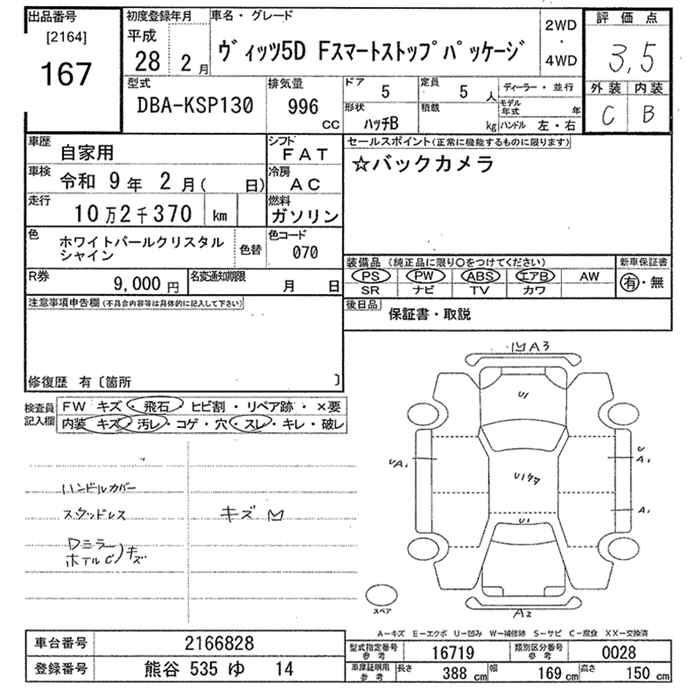 出品番号
[2164]
167
初度登録年月
平成
28 2 月
車名・グレード
ヴィッツ5D Fスマートストップパッケージ
2WD
・
4WD
評価点
3,5
外装 内装
C B
型式
DBA-KSP130
排気量
996
cc
ドア
5
定員
5 人
形状
ハッチB
積載
kg
ディーラー・並行
モデル年式 年
ハンドル 左・右
車歴
自家用
シフト
FAT
車検
令和 9 年 2 月( 日)
冷房
AC
走行
10万2千370 km
燃料
ガソリン
色
ホワイトパールクリスタル
シャイン
色替
色コード
070
R券
9,000 円
名変通知期限
月 日
セールスポイント(正常に機能するものに限ります)
☆バックカメラ
装備品(純正品に限り○をつけてください)
PS PW ABS エアB AW
SR ナビ TV カワ
新車保証書
有・無
後日品
保証書・取説
注意事項申告欄(不具合内容等は具体的に記入して下さい)
修復歴 有〔箇所 〕
検査員
記入欄
FW キズ・飛石・ヒビ割・リペア跡・×要
内装 キズ・汚レ・コゲ・穴・スレ・キレ・破レ
ハンドルカバー
スタッドレス
キズ
Dミラー
ホイルC
キズ
A3
U1
U
A1
U
A1
U1ケタ
A1
U1
A2
スペア
A−キズ E−エクボ U−凹み W−補修跡 S−サビ C−腐食 XX−交換済
車台番号
2166828
登録番号
熊谷 535 ゆ 14
型式指定番号
参考
16719
類別区分番号
参考
0028
車庫証明用
参考
長さ
388 cm
幅
169 cm
高さ
150 cm